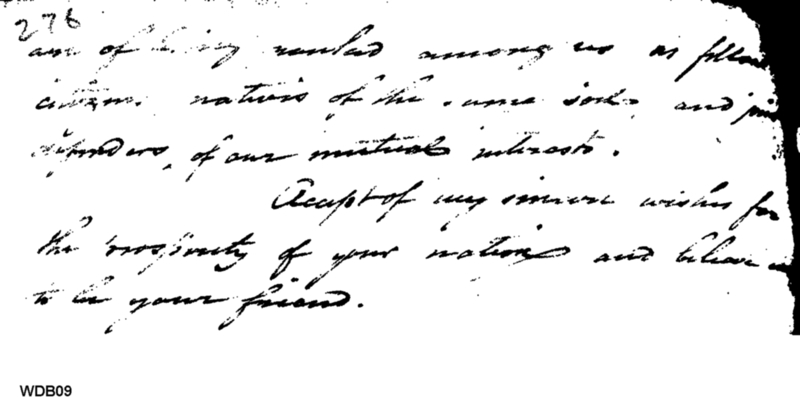 276
of being ranked among us as fellow
citizens. natives of the same soil, and joint
defenders, of our mutual interests.
Accept of my sincere wishes for
the prosperity of your nation and believe me
to be your friend.
WDB09